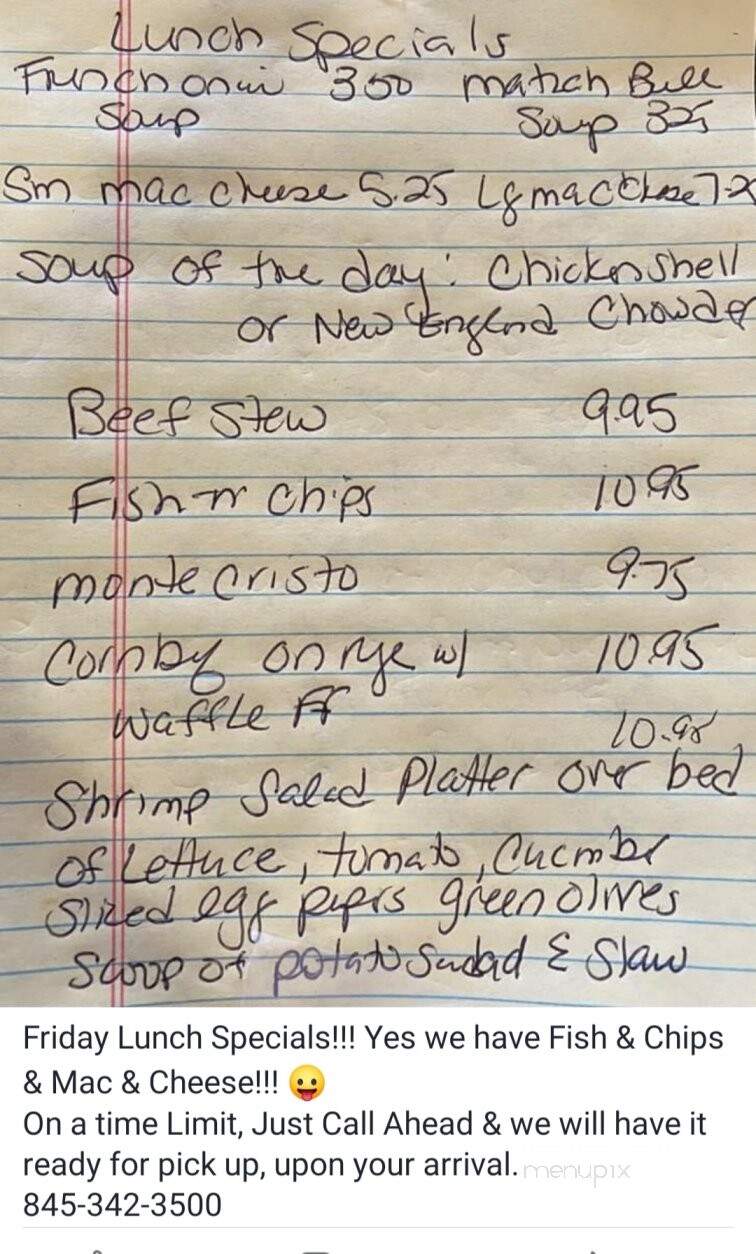 Lunch Specials
Frunch onin 350 matzh Bull
Soup Soup 325
Sm mac cheese 5.25 Lg mac chese 7.2
Soup of the day: Chickn shell
or New Englnd Chowder
Beef Stew 9.95
Fish n chips 10.95
monte Cristo 9.75
Cornby on rye w/ 10.95
Waffle FF
10.95
Shrimp Salad Platter over bed
of Lettuce, tomato, Cucmbr
Sliced egg pepers green olives
Scoop of potato Sadad & Slaw
Friday Lunch Specials!!! Yes we have Fish & Chips
& Mac & Cheese!!! 😛
On a time Limit, Just Call Ahead & we will have it
ready for pick up, upon your arrival. menupix
845-342-3500